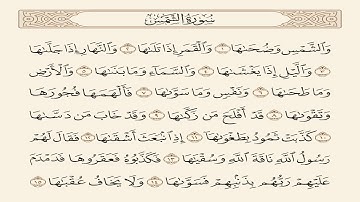 سُورَةُ الشَّمْسِ
وَالشَّمْسِ وَضُحَىٰهَا ١ وَالْقَمَرِ إِذَا تَلَىٰهَا ٢ وَالنَّهَارِ إِذَا جَلَّىٰهَا
٣ وَالَّيْلِ إِذَا يَغْشَىٰهَا ٤ وَالسَّمَآءِ وَمَا بَنَىٰهَا ٥ وَالْأَرْضِ
وَمَا طَحَىٰهَا ٦ وَنَفْسٍ وَمَا سَوَّىٰهَا ٧ فَأَلْهَمَهَا فُجُورَهَا
وَتَقْوَىٰهَا ٨ قَدْ أَفْلَحَ مَن زَكَّىٰهَا ٩ وَقَدْ خَابَ مَن دَسَّىٰهَا
١٠ كَذَّبَتْ ثَمُودُ بِطَغْوَىٰهَآ ١١ إِذِ انۢبَعَثَ أَشْقَىٰهَا ١٢ فَقَالَ لَهُمْ
رَسُولُ اللَّهِ نَاقَةَ اللَّهِ وَسُقْيَىٰهَا ١٣ فَكَذَّبُوهُ فَعَقَرُوهَا فَدَمْدَمَ
عَلَيْهِمْ رَبُّهُم بِذَنۢبِهِمْ فَسَوَّىٰهَا ١٤ وَلَا يَخَافُ عُقْبَىٰهَا ١٥